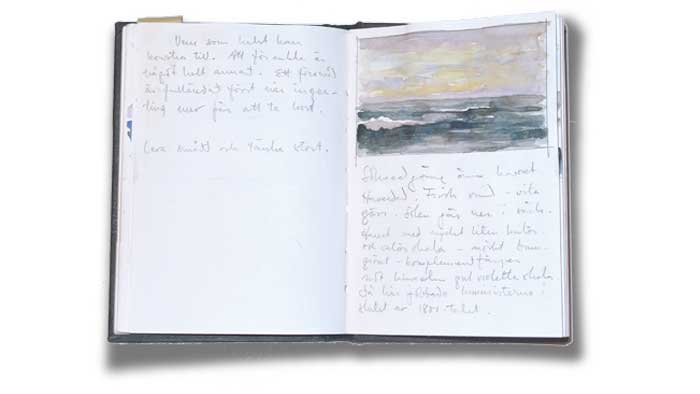 Vem som helst kan
krångla till. Att förenkla är
något helt annat. Ett föremål
är fulländat först när ingen-
ting mer går att ta bort.
Leva smått och tänka stort.
Solnedgång över havet
Frisk vind - vita
gäss. Solen går ner i
med mycket liten
och valörskala - mörkt
grönt - komplementfärgen
mot himmelns gul violetta skala
Så här målade
slutet av 1800-talet.